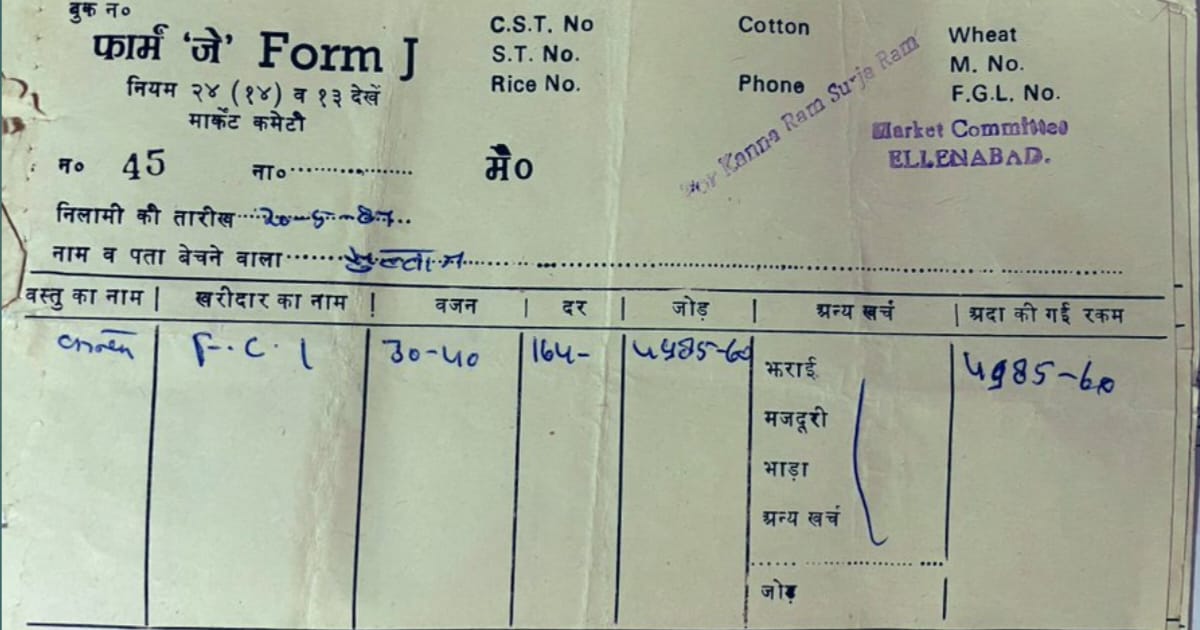 बुक न०
फार्म ‘जे’ Form J
नियम २४ (१४) व १३ देखें
मार्केट कमेटी
C.S.T. No
S.T. No.
Rice No.
Cotton
Phone
Wheat
M. No.
F.G.L. No.
For Kanna Ram Surja Ram
Market Committee
ELLENABAD.
न० 45 ना०.................. मै०
निलामी की तारीख....20-5-87..
नाम व पता बेचने वाला
वस्तु का नाम | खरीदार का नाम | वजन | दर | जोड़ | अन्य खर्च | अदा की गई रकम
F.C.I 30-40 164- 4985-60 झराई 4985-60
मजदूरी
भाड़ा
अन्य खर्च
जोड़